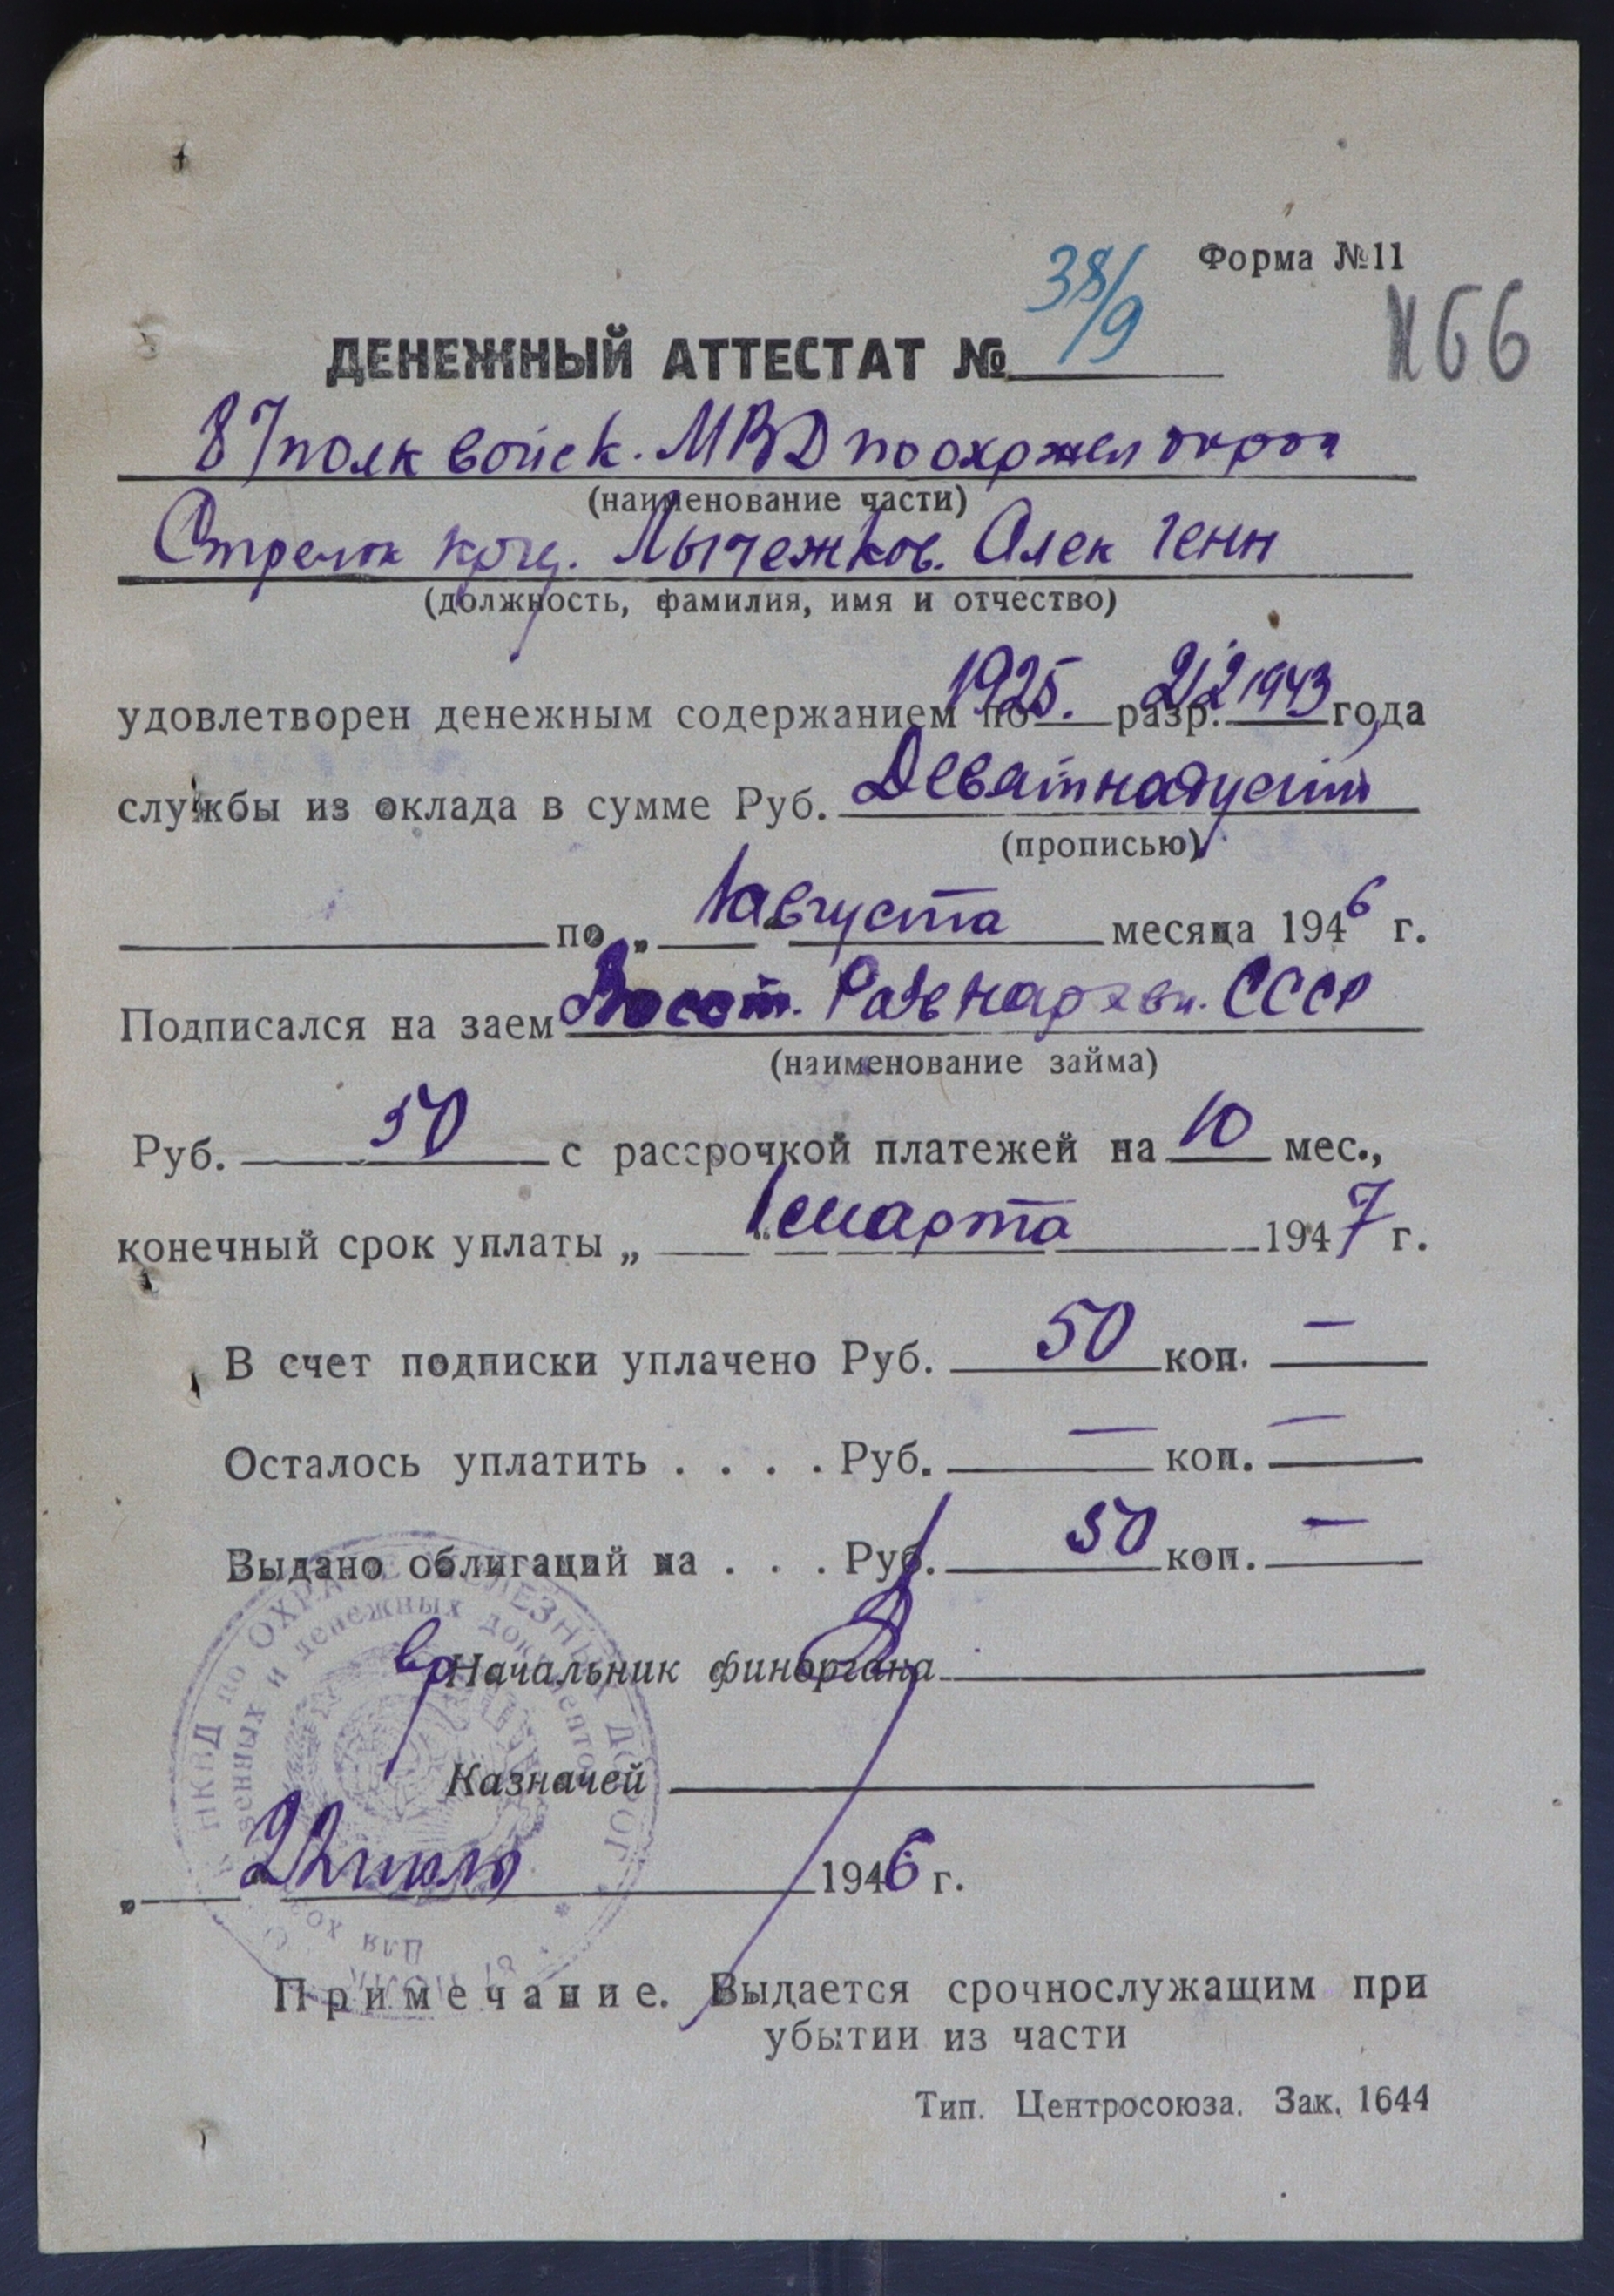 Форма №11
38/9
№66
ДЕНЕЖНЫЙ АТТЕСТАТ №
87 полк войск. МВД по охр жел дорог
(наименование части)
Стрелок Лычежков. Алек Генн
(должность, фамилия, имя и отчество)
удовлетворен денежным содержанием по 1925. разр. 2/2 1943 года
службы из оклада в сумме Руб.
(прописью)
по „1" августа месяца 1946 г.
Подписался на заем Восст. Разв нар хвы. СССР
(наименование займа)
Руб. 50 с рассрочкой платежей на 10 мес.,
конечный срок уплаты „1" марта 1947 г.
В счет подписки уплачено Руб. 50 коп. —
Осталось уплатить . . . . Руб. — коп. —
Выдано облигаций на . . . Руб. 50 коп. —
вр Начальник финоргана
Казначей
„ 1946 г.
НКВД по ОХРАНЕ ЖЕЛЕЗНЫХ ДОРОГ
Для хозяйственных и денежных документов
Примечание. Выдается срочнослужащим при
убытии из части
Тип. Центросоюза. Зак. 1644